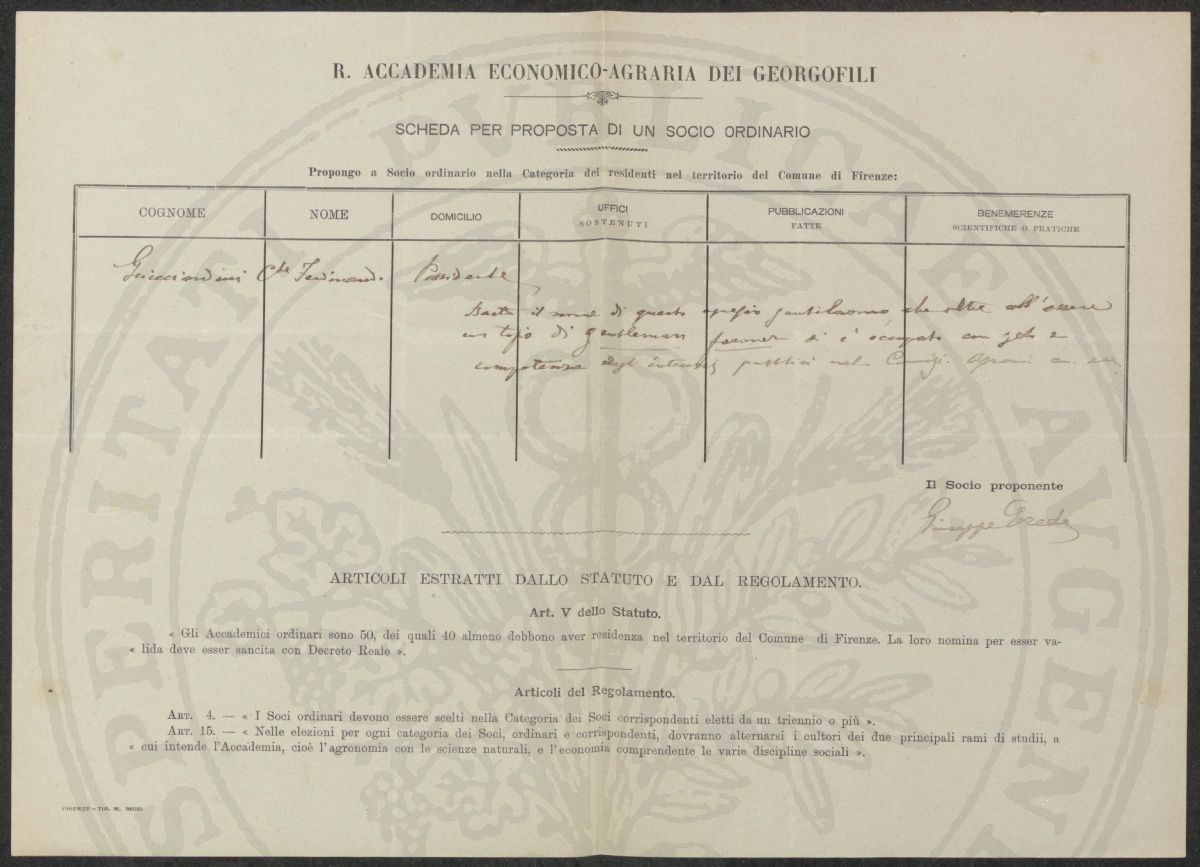 R. ACCADEMIA ECONOMICO-AGRARIA DEI GEORGOFILI
SCHEDA PER PROPOSTA DI UN SOCIO ORDINARIO
Propongo a Socio ordinario nella Categoria dei residenti nel territorio del Comune di Firenze:
COGNOME NOME DOMICILIO UFFICI SOSTENUTI PUBBLICAZIONI FATTE BENEMERENZE SCIENTIFICHE O PRATICHE
Guicciardini Cte Ferdinando Possidente
Basta il nome di questo egregio gentiluomo, che oltre all'essere
un tipo di gentleman farmer si è occupato con zelo e
competenza degli interessi pubblici nel Agrari
Il Socio proponente
Giuseppe Erede
ARTICOLI ESTRATTI DALLO STATUTO E DAL REGOLAMENTO.
Art. V dello Statuto.
« Gli Accademici ordinari sono 50, dei quali 40 almeno debbono aver residenza nel territorio del Comune di Firenze. La loro nomina per esser va-
« lida deve esser sancita con Decreto Reale ».
Articoli del Regolamento.
ART. 4. — « I Soci ordinari devono essere scelti nella Categoria dei Soci corrispondenti eletti da un triennio o più ».
ART. 15. — « Nelle elezioni per ogni categoria dei Soci, ordinari e corrispondenti, dovranno alternarsi i cultori dei due principali rami di studii, a
« cui intende l'Accademia, cioè l'agronomia con le scienze naturali, e l'economia comprendente le varie discipline sociali ».
FIRENZE — TIP. M. RICCI